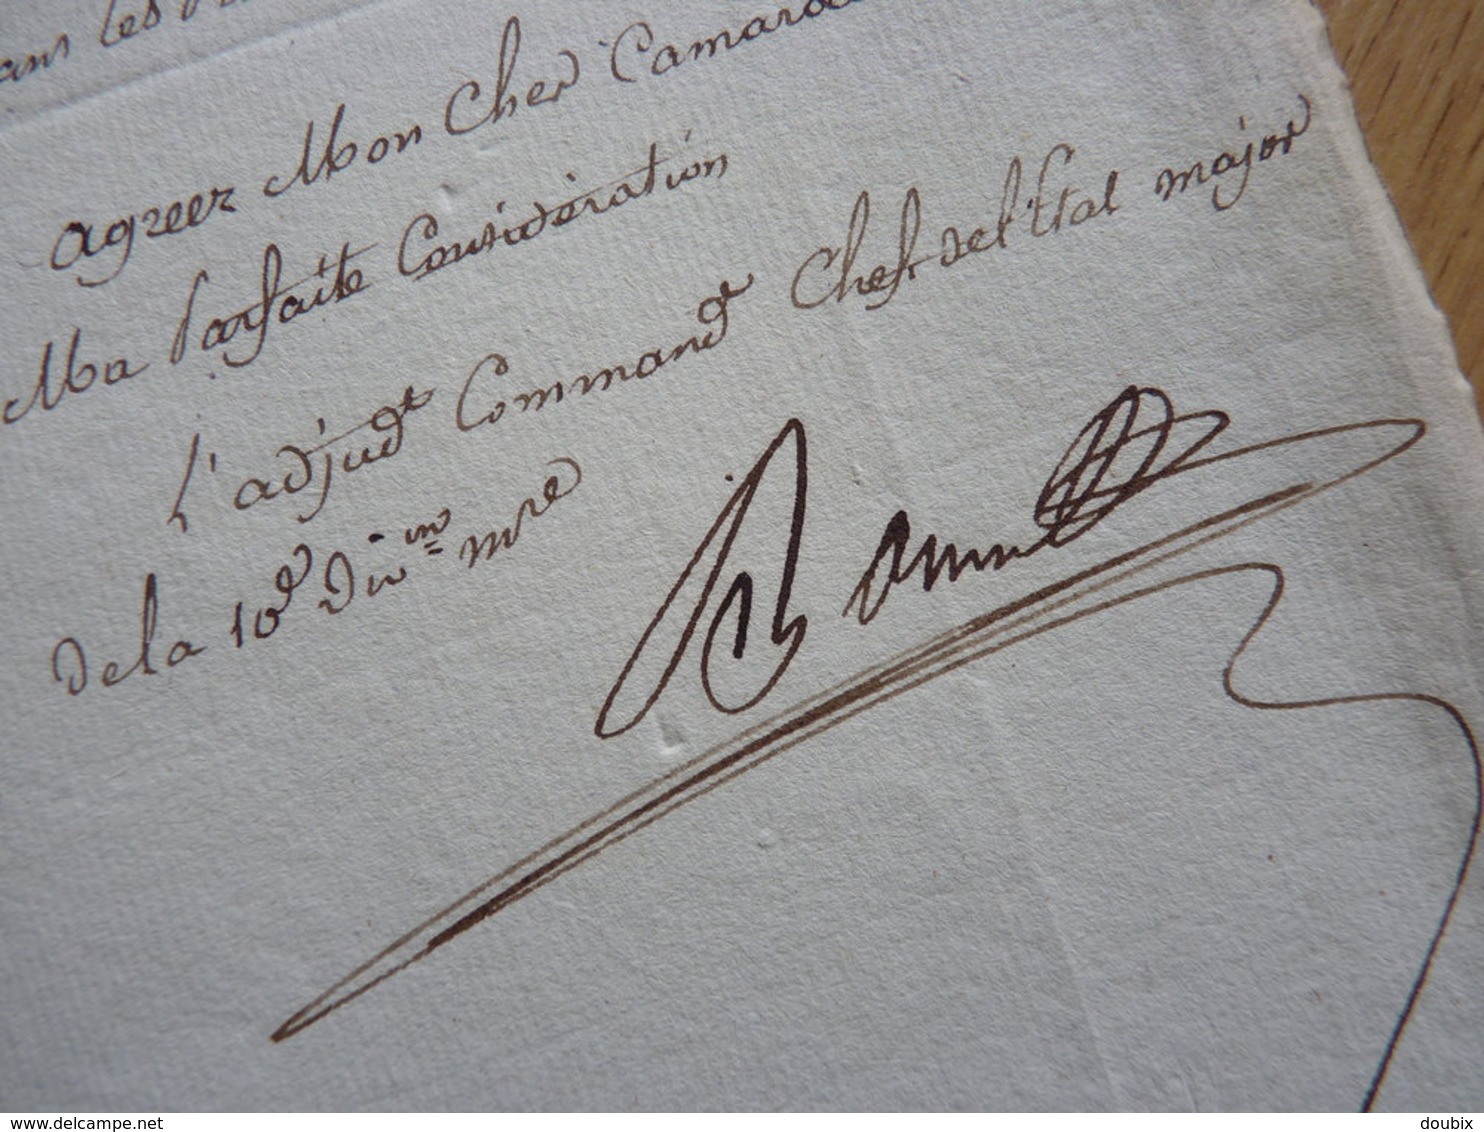 ans les
agreer Mon Cher Camarade
Ma Parfaite Considération
L'adjudt Commandt Chef del'Etat major
dela 10e Divion mre
delcampe.net
doubix